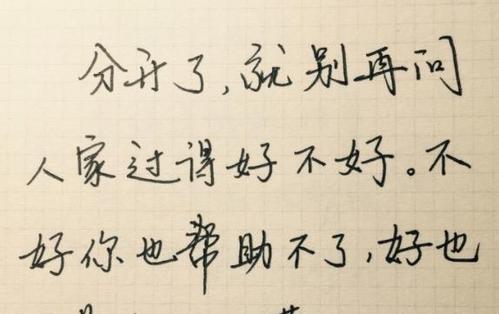 分开了,就别再问
人家过得好不好。不
好你也帮助不了,好也